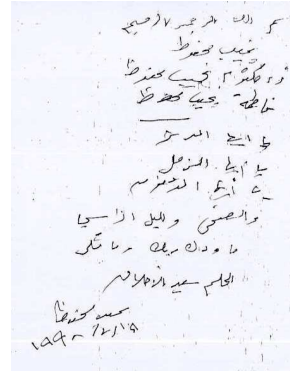 بسم الله الرحمن الرحيم
نجيب محفوظ
أم كلثوم نجيب محفوظ
فاطمة نجيب محفوظ
يا أيها المدثر
يا أيها المزمل
يا أيها
والضحى والليل إذا سجى
ما ودعك ربك وما قلى
الحلم سيد الأخلاق
نجيب محفوظ